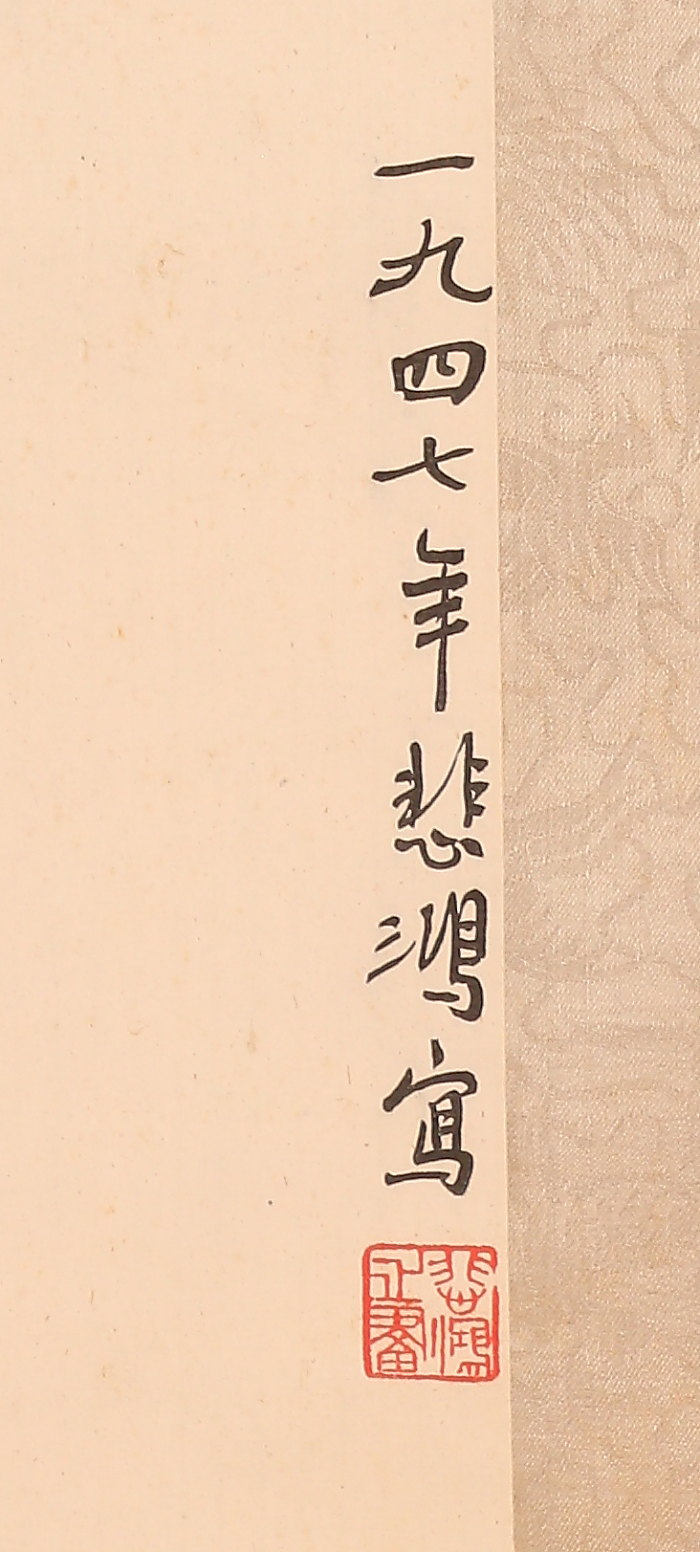 一九四七年悲鴻寫
悲鴻之畫